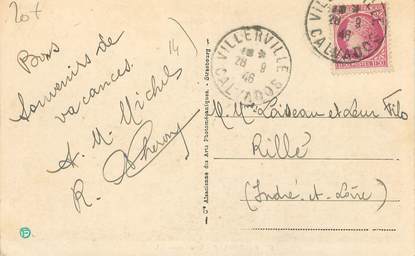 20f
14
Bons
Souvenirs de
vacances.
A. M. Michel
R.
Cie Alsacienne des Arts Photomécaniques - Strasbourg
VILLERVILLE
28 - 8
46
CALVADOS
VILLERVILLE
28 - 8
46
CALVADOS
M. M. Loiseau et Leur Fils
Rillé
(Indre-et-Loire)